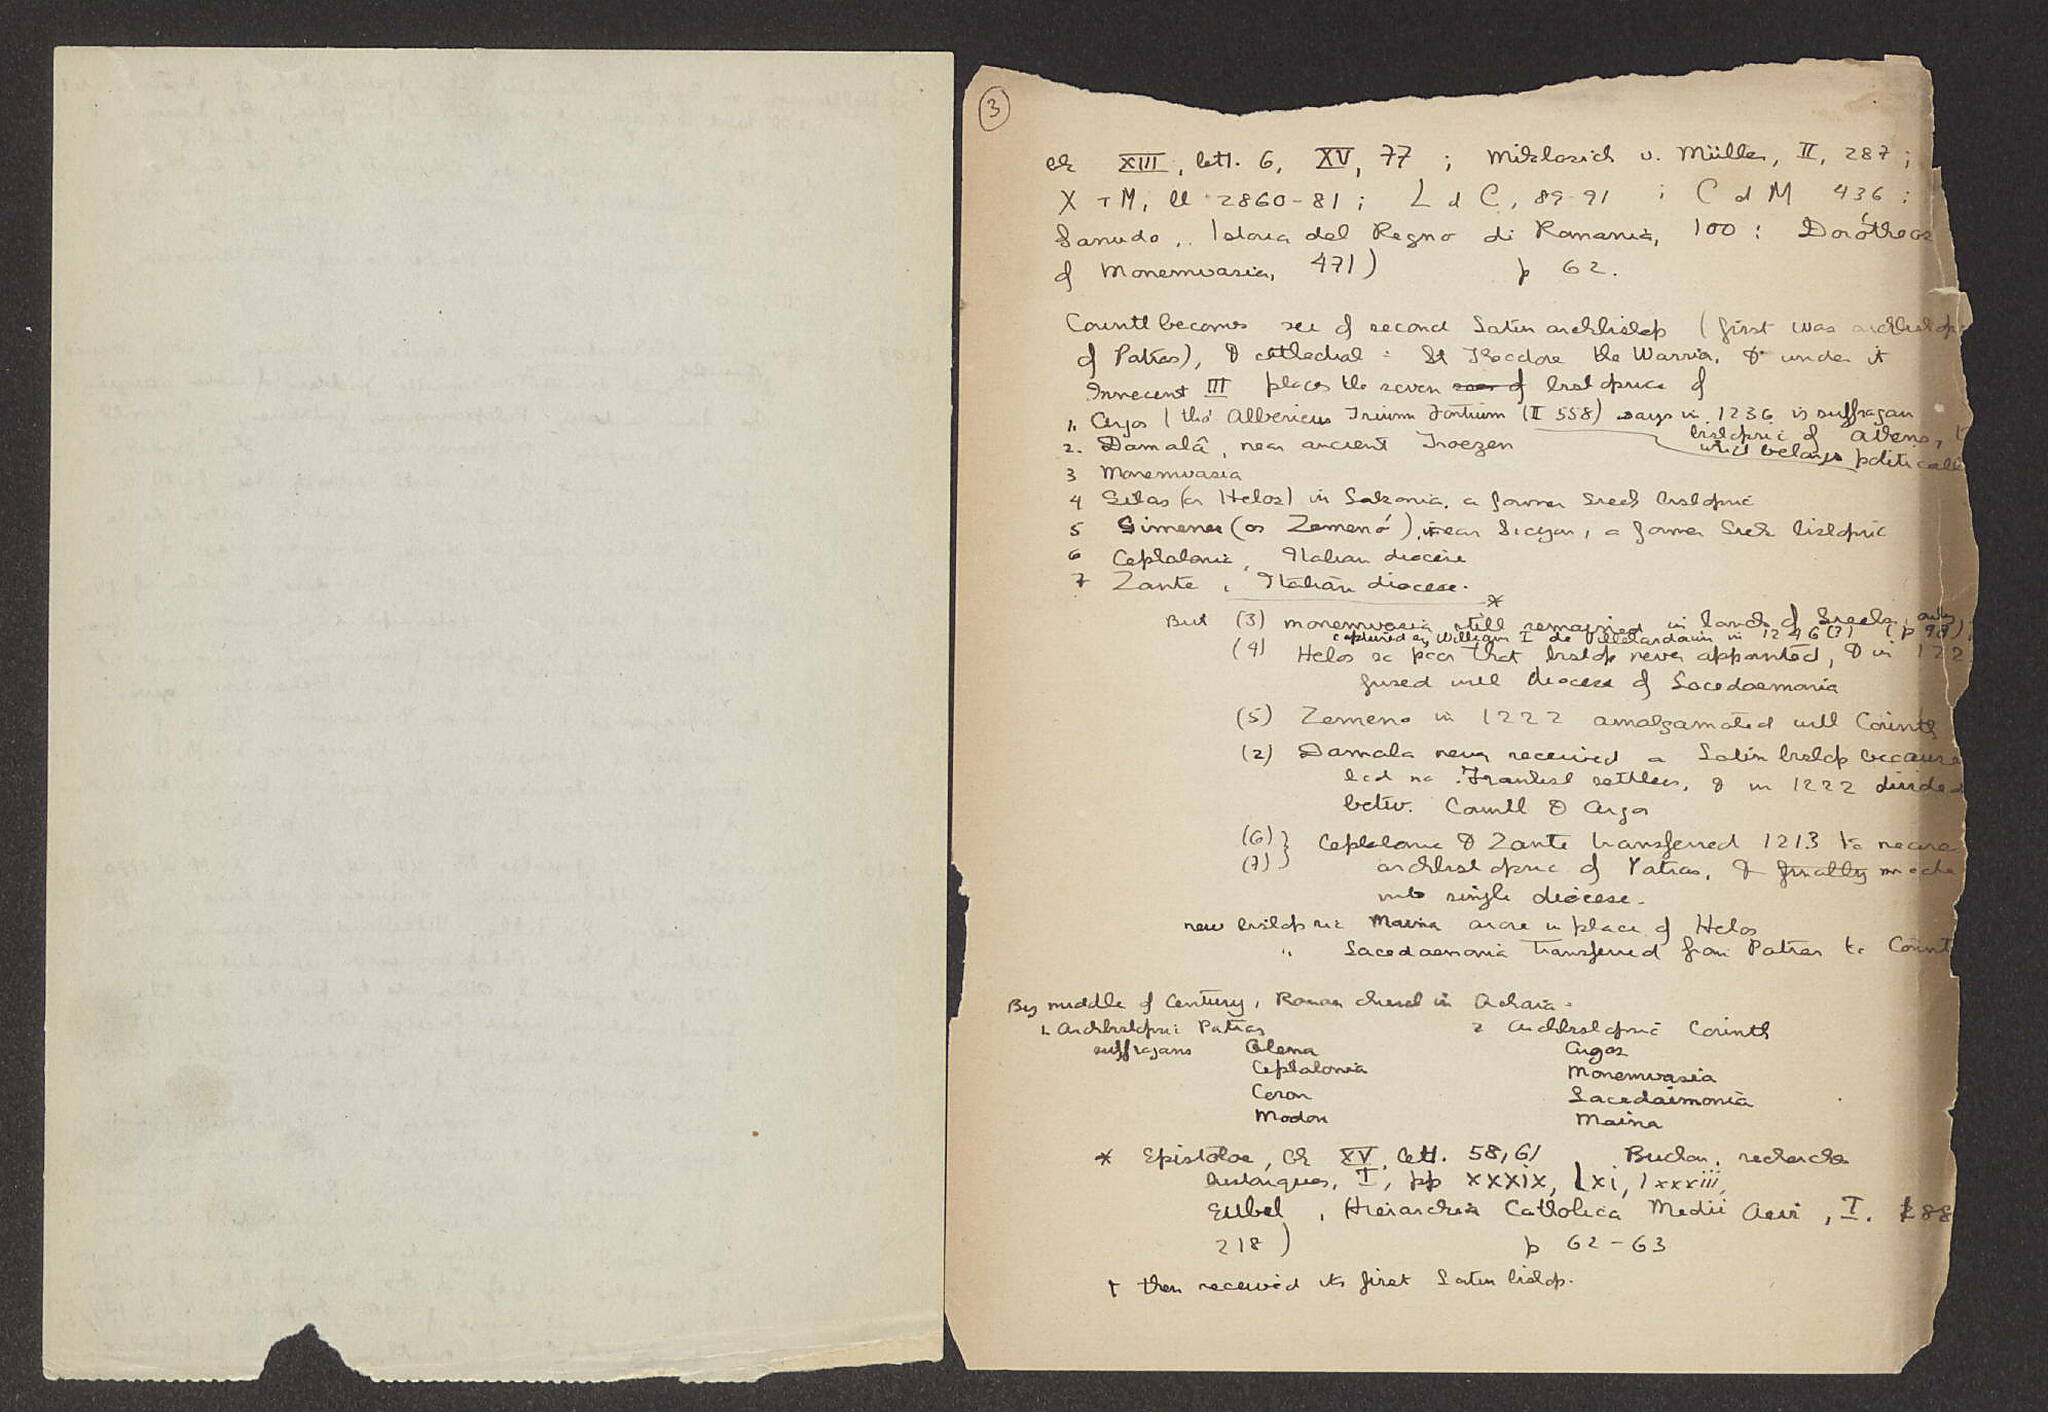 3
Ch XIII, lett. 6, XV, 77 ; Miklosich u. Müller, II, 287 ;
X T M, ll 2860-81 ; L d C, 89-91 ; C d M 436 ;
Sanudo, Istoria del Regno di Romania, 100 : Dorótheos
of Monemvasia, 471) p 62.
Corinth becomes see of second Latin archbishop (first was archbishop
of Patras), & cathedral = St Theodore the Warrior, & under it
Innocent III places the seven sees of bishoprics of
1. Argos (tho' Albericus Trium Fontium (II 558) says in 1236 is suffragan
bishopric of Athens, to
which belongs politically
2. Damalâ, near ancient Troezen
3 Monemvasia
4 Gilas (or Helos) in Lakonia, a former Greek bishopric
5 Gimenes (or Zemenó), near Sicyon, a former Greek bishopric
6 Cephalonia, Italian diocese
7 Zante, Italian diocese.
But (3) Monemvasia still remained * in hands of Greeks, only
captured by William I de Villehardouin in 1246 (?) (p 98),
(4) Helos so poor that bishop never appointed, & in 122
fused with diocese of Lacedaemonia
(5) Zemeno in 1222 amalgamated with Corinth
(2) Damala never received a Latin bishop because
had no Frankish settlers, & in 1222 divided
betw. Corinth & Argos
(6) } Cephalonia & Zante transferred 1213 to nearer
(7) } archbishopric of Patras, & finally made
into single diocese.
new bishopric Maina arose in place of Helos
" Lacedaemonia transferred from Patras to Corint
By middle of century, Roman church in Achaia =
1. Archbishopric Patras 2 Archbishopric Corinth
suffragans Olena Argos
Cephalonia Monemvasia
Coron Lacedaimonia
Modon Maina
* Epistolae, Ch XV, lett. 58, 61 Buchon, recherches
historiques, I, pp xxxix, lxi, lxxxiii,
Eubel, Hierarchia Catholica Medii Aevi, I. 288
218) p 62-63
† then received its first Latin bishop.